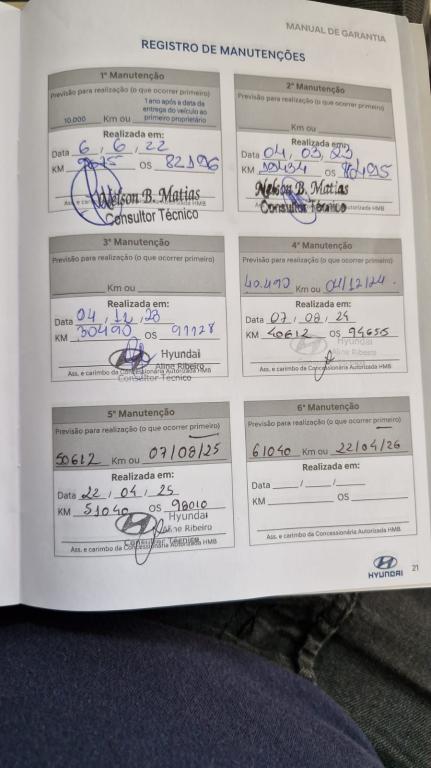 MANUAL DE GARANTIA
REGISTRO DE MANUTENÇÕES
1ª Manutenção
Previsão para realização (o que ocorrer primeiro)
10.000 Km ou 1 ano após a data da entrega do veículo ao primeiro proprietário
Realizada em:
Data 6 / 6 / 22
KM OS 82196
Nelson B. Matias
Consultor Técnico
2ª Manutenção
Previsão para realização (o que ocorrer primeiro)
Km ou
Realizada em:
Data 04 / 03 / 23
KM OS
Nelson B. Matias
Consultor Técnico
3ª Manutenção
Previsão para realização (o que ocorrer primeiro)
Km ou
Realizada em:
Data 04 / 12 / 23
KM 30490 OS 91128
Hyundai
Aline Ribeiro
Ass. e carimbo da Concessionária Autorizada HMB
Consultor Técnico
4ª Manutenção
Previsão para realização (o que ocorrer primeiro)
40.490 Km ou 04/12/24.
Realizada em:
Data 07 / 08 / 24
KM 40612 OS 94655
Hyundai
Aline Ribeiro
Ass. e carimbo da Concessionária Autorizada HMB
5ª Manutenção
Previsão para realização (o que ocorrer primeiro)
50612 Km ou 07/08/25
Realizada em:
Data 22 / 04 / 25
KM 51040 OS 98010
Hyundai
Aline Ribeiro
Ass. e carimbo da Concessionária Autorizada HMB
Consultor Técnico
6ª Manutenção
Previsão para realização (o que ocorrer primeiro)
61040 Km ou 22/04/26
Realizada em:
Data / /
KM OS
Ass. e carimbo da Concessionária Autorizada HMB
HYUNDAI
21